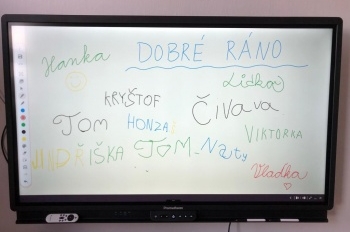 Hanka DOBRÉ RÁNO
Lidka
KRYŠTOF
ČIVAVA
TOM HONZA
VIKTORKA
JINDŘIŠKA TOM Naty
Vladka